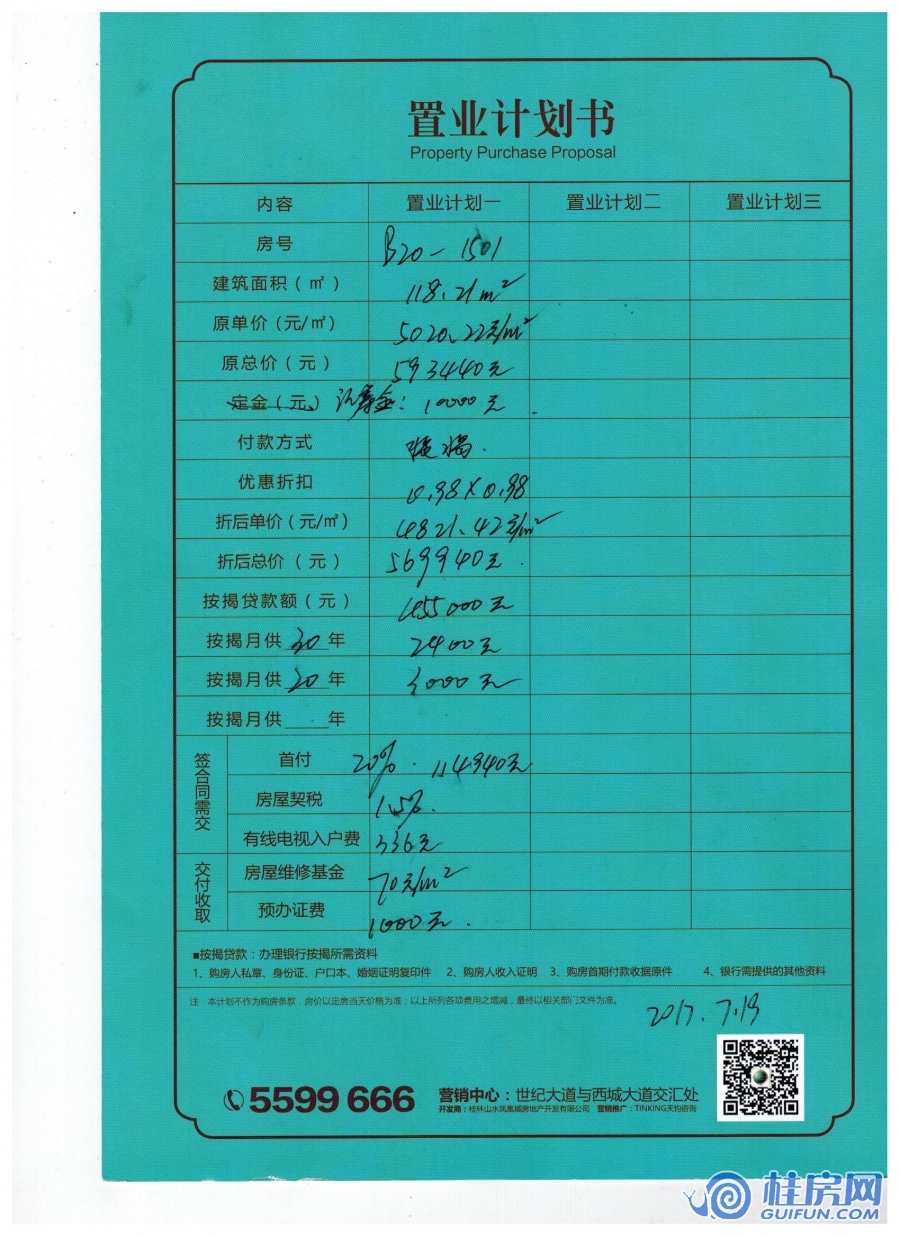 置业计划书
Property Purchase Proposal
内容 置业计划一 置业计划二 置业计划三
房号 B20-1501
建筑面积（㎡） 118.21m²
原单价（元/㎡） 5020.22元/m²
原总价（元） 593440元
定金（元） 认筹金：10000元
付款方式 按揭.
优惠折扣 0.98×0.98
折后单价（元/㎡） 4821.42元/m²
折后总价（元） 569940元.
按揭贷款额（元） 455000元
按揭月供 30 年 2400元
按揭月供 20 年 3000元
按揭月供 年
签合同需交
首付 20%. 114940元
房屋契税 1.5%.
有线电视入户费 336元
交付收取
房屋维修基金 70元/m²
预办证费 1000元.
■按揭贷款：办理银行按揭所需资料
1、购房人私章、身份证、户口本、婚姻证明复印件 2、购房人收入证明 3、购房首期付款收据原件 4、银行需提供的其他资料
注：本计划不作为购房条款，房价以定房当天价格为准；以上所列各项费用之增减，最终以相关部门文件为准。
2017.7.19
5599 666
营销中心：世纪大道与西城大道交汇处
开发商：桂林山水凤凰城房地产开发有限公司 营销推广：TINKING天钧咨询
桂房网
GUIFUN.COM